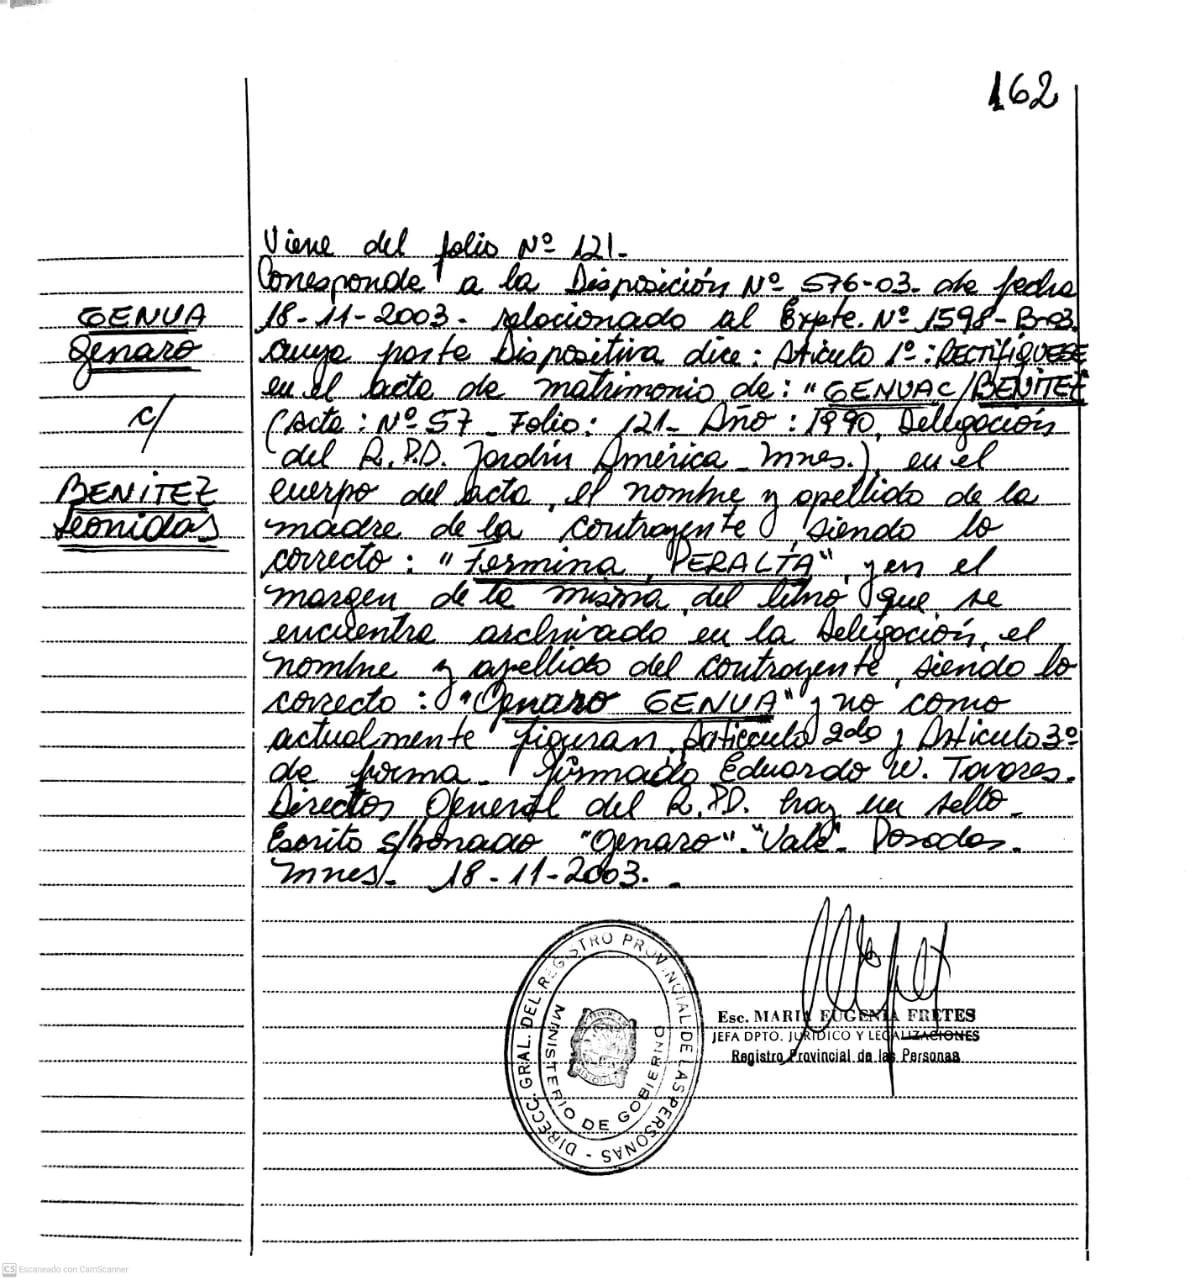 162
Viene del folio Nº 121.-
Corresponde a la Disposición Nº 576-03. de fecha
18-11-2003.- relacionado al Expte. Nº 1598-B-03.
cuya parte Dispositiva dice: Artículo 1º: RECTIFIQUESE
en el acta de matrimonio de: "GENUA C/ BENITEZ
(Acta: Nº 57 - Folio: 121- Año: 1990, Delegación
del R.P.D. Jardín América - Mnes.), en el
cuerpo del acta, el nombre y apellido de la
madre de la contrayente, siendo lo
correcto: "Fermina, PERALTA", y en el
margen de la misma, del libro que se
encuentra archivado en la Delegación, el
nombre y apellido del contrayente, siendo lo
correcto: "Genaro GENUA" y no como
actualmente figuran. Artículo 2do y Artículo 3º
de forma.- Firmado Eduardo W. Tavares.
Director General del R.P.D. hay un sello.-
Escrito s/borrado "Genaro". "Vale". Posadas.
Mnes. - 18-11-2003.-
GENUA
Genaro
c/
BENITEZ
Leonidas
DIRECC. GRAL. DEL REGISTRO PROVINCIAL DE LAS PERSONAS -
MINISTERIO DE GOBIERNO
Esc. MARIA EUGENIA FRETES
JEFA DPTO. JURIDICO Y LEGALIZACIONES
Registro Provincial de las Personas
CS Escaneado con CamScanner